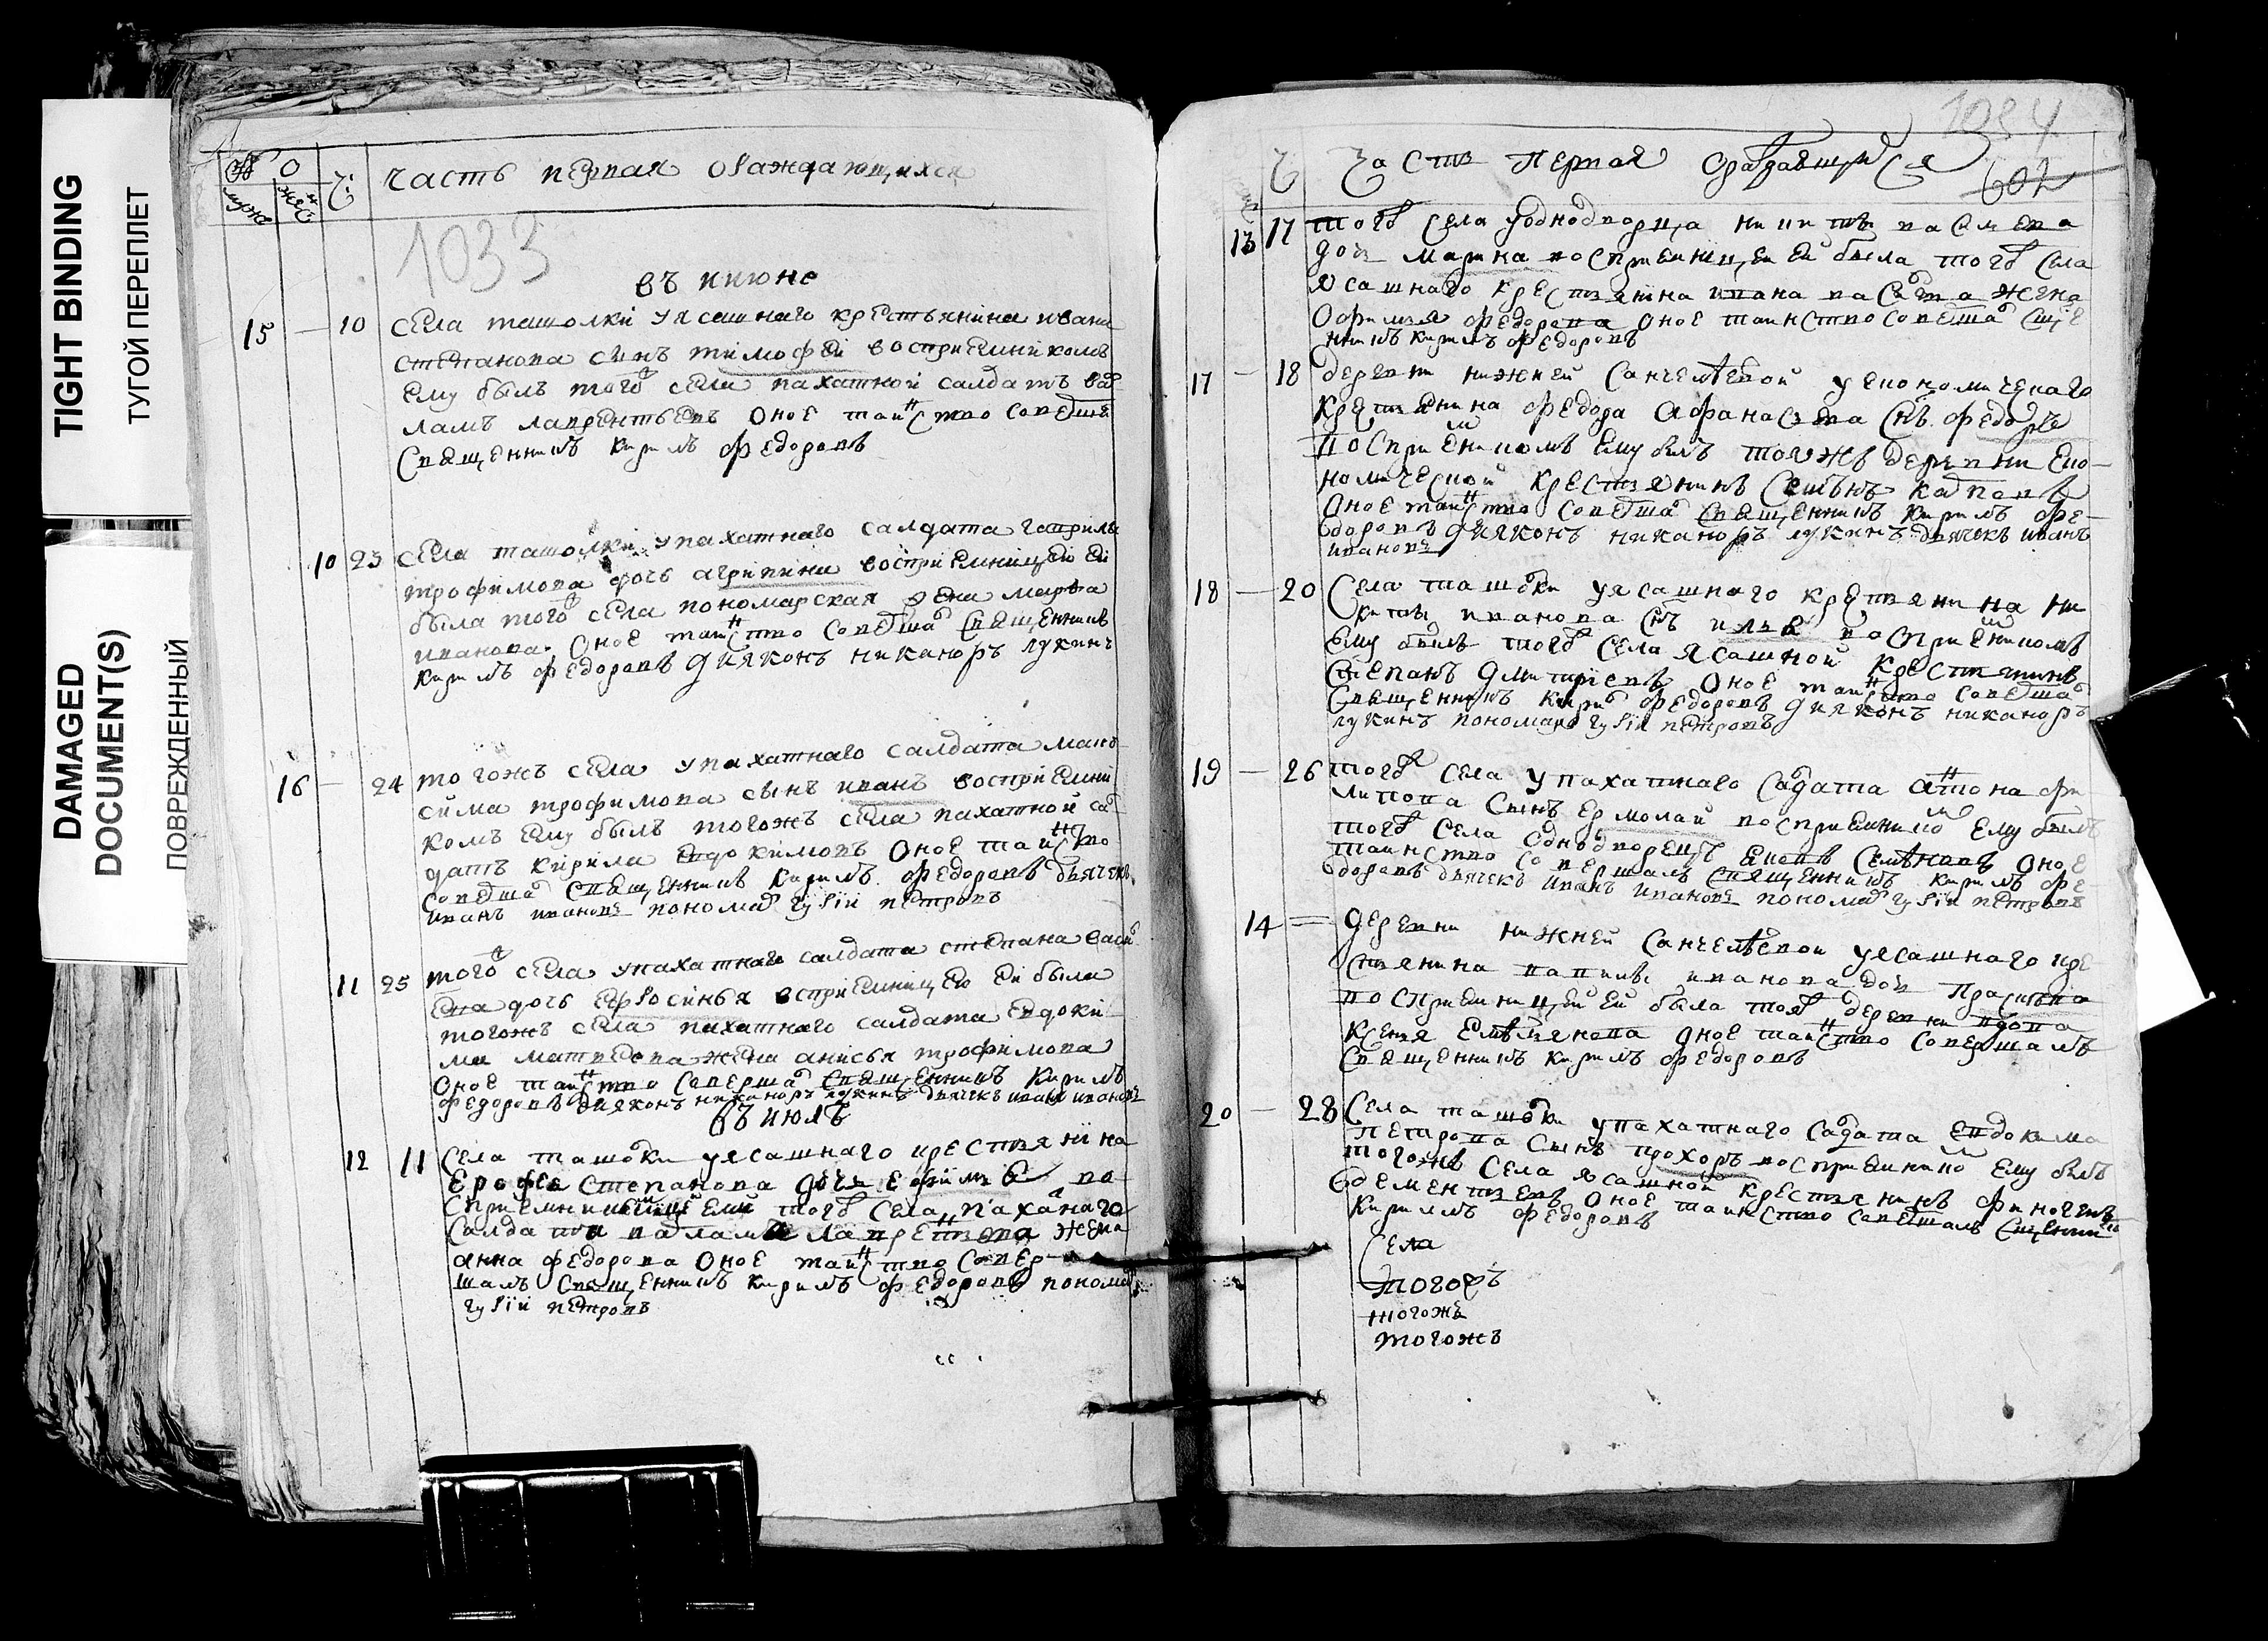 TIGHT BINDING
ТУГОЙ ПЕРЕПЛЕТ
DAMAGED
DOCUMENT(S)
ПОВРЕЖДЕННЫЙ
часть первая
1033
въ июне
15 — 10 села ташолки у ясашнаго крестьянина ивана
степанова сынъ тимофей восприемникомъ
ему былъ того села пахатной салдатъ
лаврентьевъ оное таинство соверша
священникъ кирилъ федоровъ
10 23 села ташолки у пахатнаго салдата гаврилы
трофимова дочь агрипина восприемницею ей
была того села пономарская жена марфа
иванова оное таинство совершал священникъ
кирилъ федоровъ диаконъ никаноръ лукинъ
16 — 24 тогожъ села у пахатнаго салдата макъ
сима трофимова сынъ иванъ восприемни
комъ ему былъ тогожъ села пахатной сал
датъ кирила евдокимовъ оное таинство
совершал священникъ кирилъ федоровъ дьячекъ
иванъ ивановъ пономарь гурiй петровъ
11 25 того села у пахатнаго салдата степана
дочь ефросинья восприемницею ей была
тогожъ села пахатнаго салдата евдоки
ма матвеева жена анисья трофимова
оное таинство совершал священникъ кирилъ
федоровъ диаконъ никаноръ лукинъ дьячекъ иванъ ивановъ
въ июлѣ
12 11 села ташолки у ясашнаго крестьянина
ерофея степанова дочь ефимья во
того села пахатнаго
салдата варлама лаврентьева жена
анна федорова оное таинство совер
шалъ священникъ кирилъ федоровъ пономарь
гурiй петровъ
1034
602
часть первая
13 17 того села у однодворца никиты
дочь марина восприемницею ей была того села
ясашнаго крестьянина ивана жена
федорова оное таинство совершал
кирилъ федоровъ
17 — 18 деревни нижней санчелѣевой у економическаго
крестьянина федора афанасьева сынъ федоръ
восприемникомъ ему былъ тояжъ деревни еко
номической крестьянинъ
оное таинство совершал священникъ кирилъ фе
доровъ диаконъ никаноръ лукинъ дьячекъ иванъ
ивановъ
18 — 20 села ташолки у ясашнаго крестьянина ни
киты иванова сынъ илья восприемникомъ
ему былъ того села ясашной крестьянинъ
степанъ дмитриевъ оное таинство совершал
священникъ кирилъ федоровъ диаконъ никаноръ
лукинъ пономарь гурiй петровъ
19 — 26 того села у пахатнаго салдата антона фи
липова сынъ ермолай восприемникомъ ему былъ
того села однодворецъ оное
таинство совершалъ священникъ кирилъ фе
доровъ дьячекъ иванъ ивановъ пономарь гурiй петровъ
14 деревни нижней санчелѣевой у ясашнаго кре
стьянина иванова дочь
восприемницею ей была тоя деревни вдова
оное таинство совершалъ
священникъ кирилъ федоровъ
20 — 28 села ташолки у пахатнаго салдата евдокима
петрова сынъ прохоръ восприемникомъ ему былъ
тогожъ села ясашной крестьянинъ
дементьевъ оное таинство совершалъ священникъ
кирилъ федоровъ
села
тогожъ
тогожъ
тогожъ